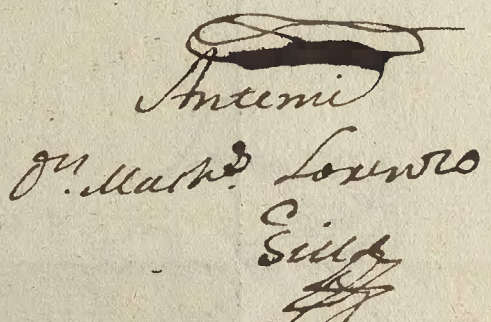 Antemi
Dn. Mathˢ. Lorenzo
Gill